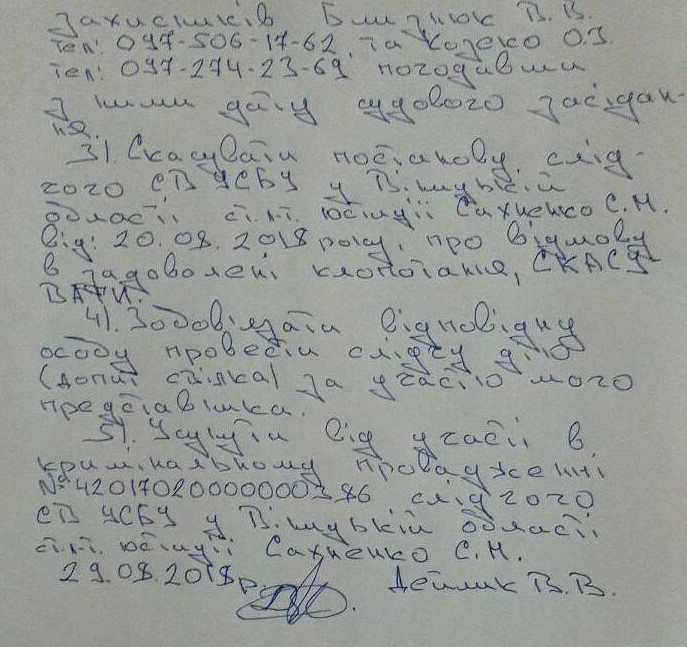 захисників Близнюк В. В.
тел: 097-506-17-62, та Козеко О.З.
тел: 097-274-23-69, погодивши
з ними дату судового засідан-
ня.
3). Скасувати постанову, слід-
чого СВ УСБУ у Вінницькій
області ст.л-т. юстиції Сахненко С.М.
від: 20.08.2018 року, про відмову
в задоволені клопотання, СКАСУ-
ВАТИ.
4). Зобовізати відповідну
особу провести слідчу дію
(допит свідка) за участю мого
представника.
5). Усунути від участі в
кримінальному провадженні
№42017020000000376 слідчого
СВ УСБУ у Вінницькій області
ст.л-т. юстиції Сахненко С.М.
29.08.2018р. Дейлик В.В.